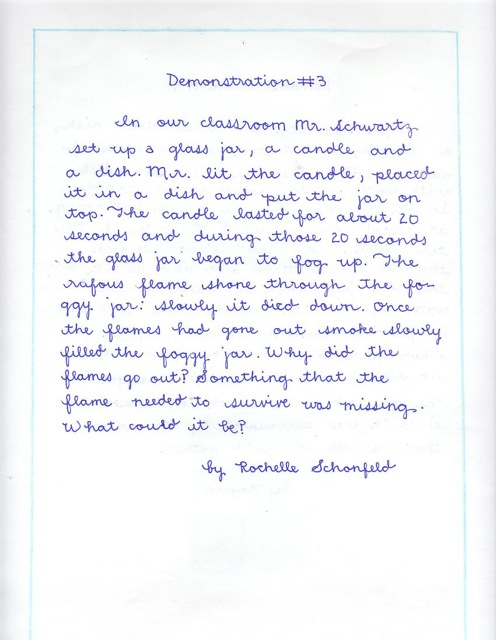 Demonstration #3
In our classroom Mr. Schwartz
set up a glass jar, a candle and
a dish. Mr. lit the candle, placed
it in a dish and put the jar on
top. The candle lasted for about 20
seconds and during those 20 seconds
the glass jar began to fog up. The
rufous flame shone through the fo-
ggy jar: slowly it died down. Once
the flames had gone out smoke slowly
filled the foggy jar. Why did the
flames go out? Something that the
flame needed to survive was missing.
What could it be?
by Rochelle Schonfeld